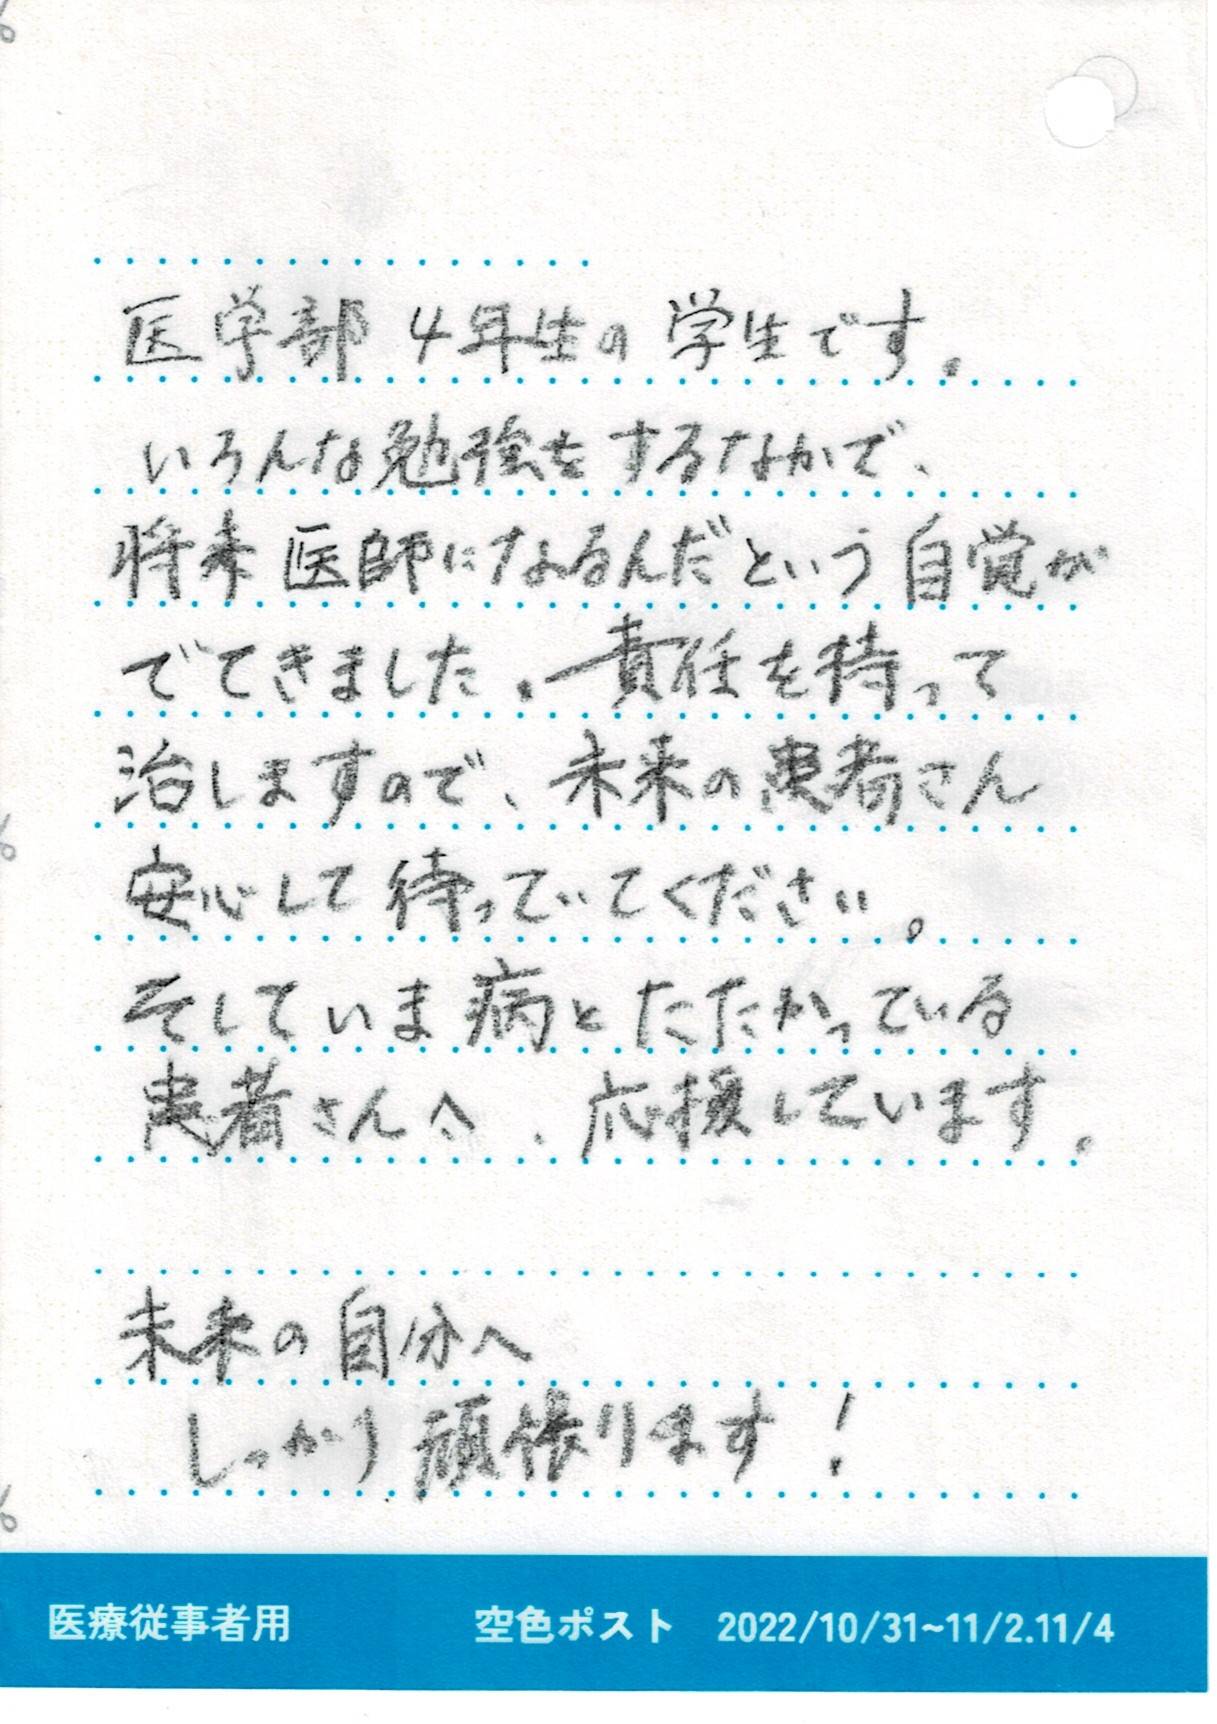 医学部 4年生の 学生です。
いろんな勉強をするなかで、
将来 医師になるんだという自覚が
でてきました。責任を持って
治しますので、未来の患者さん
安心して待っていてください。
そしていま病とたたかっている
患者さんへ、応援しています。
未来の自分へ
しっかり頑張ります!
医療従事者用 空色ポスト 2022/10/31~11/2.11/4